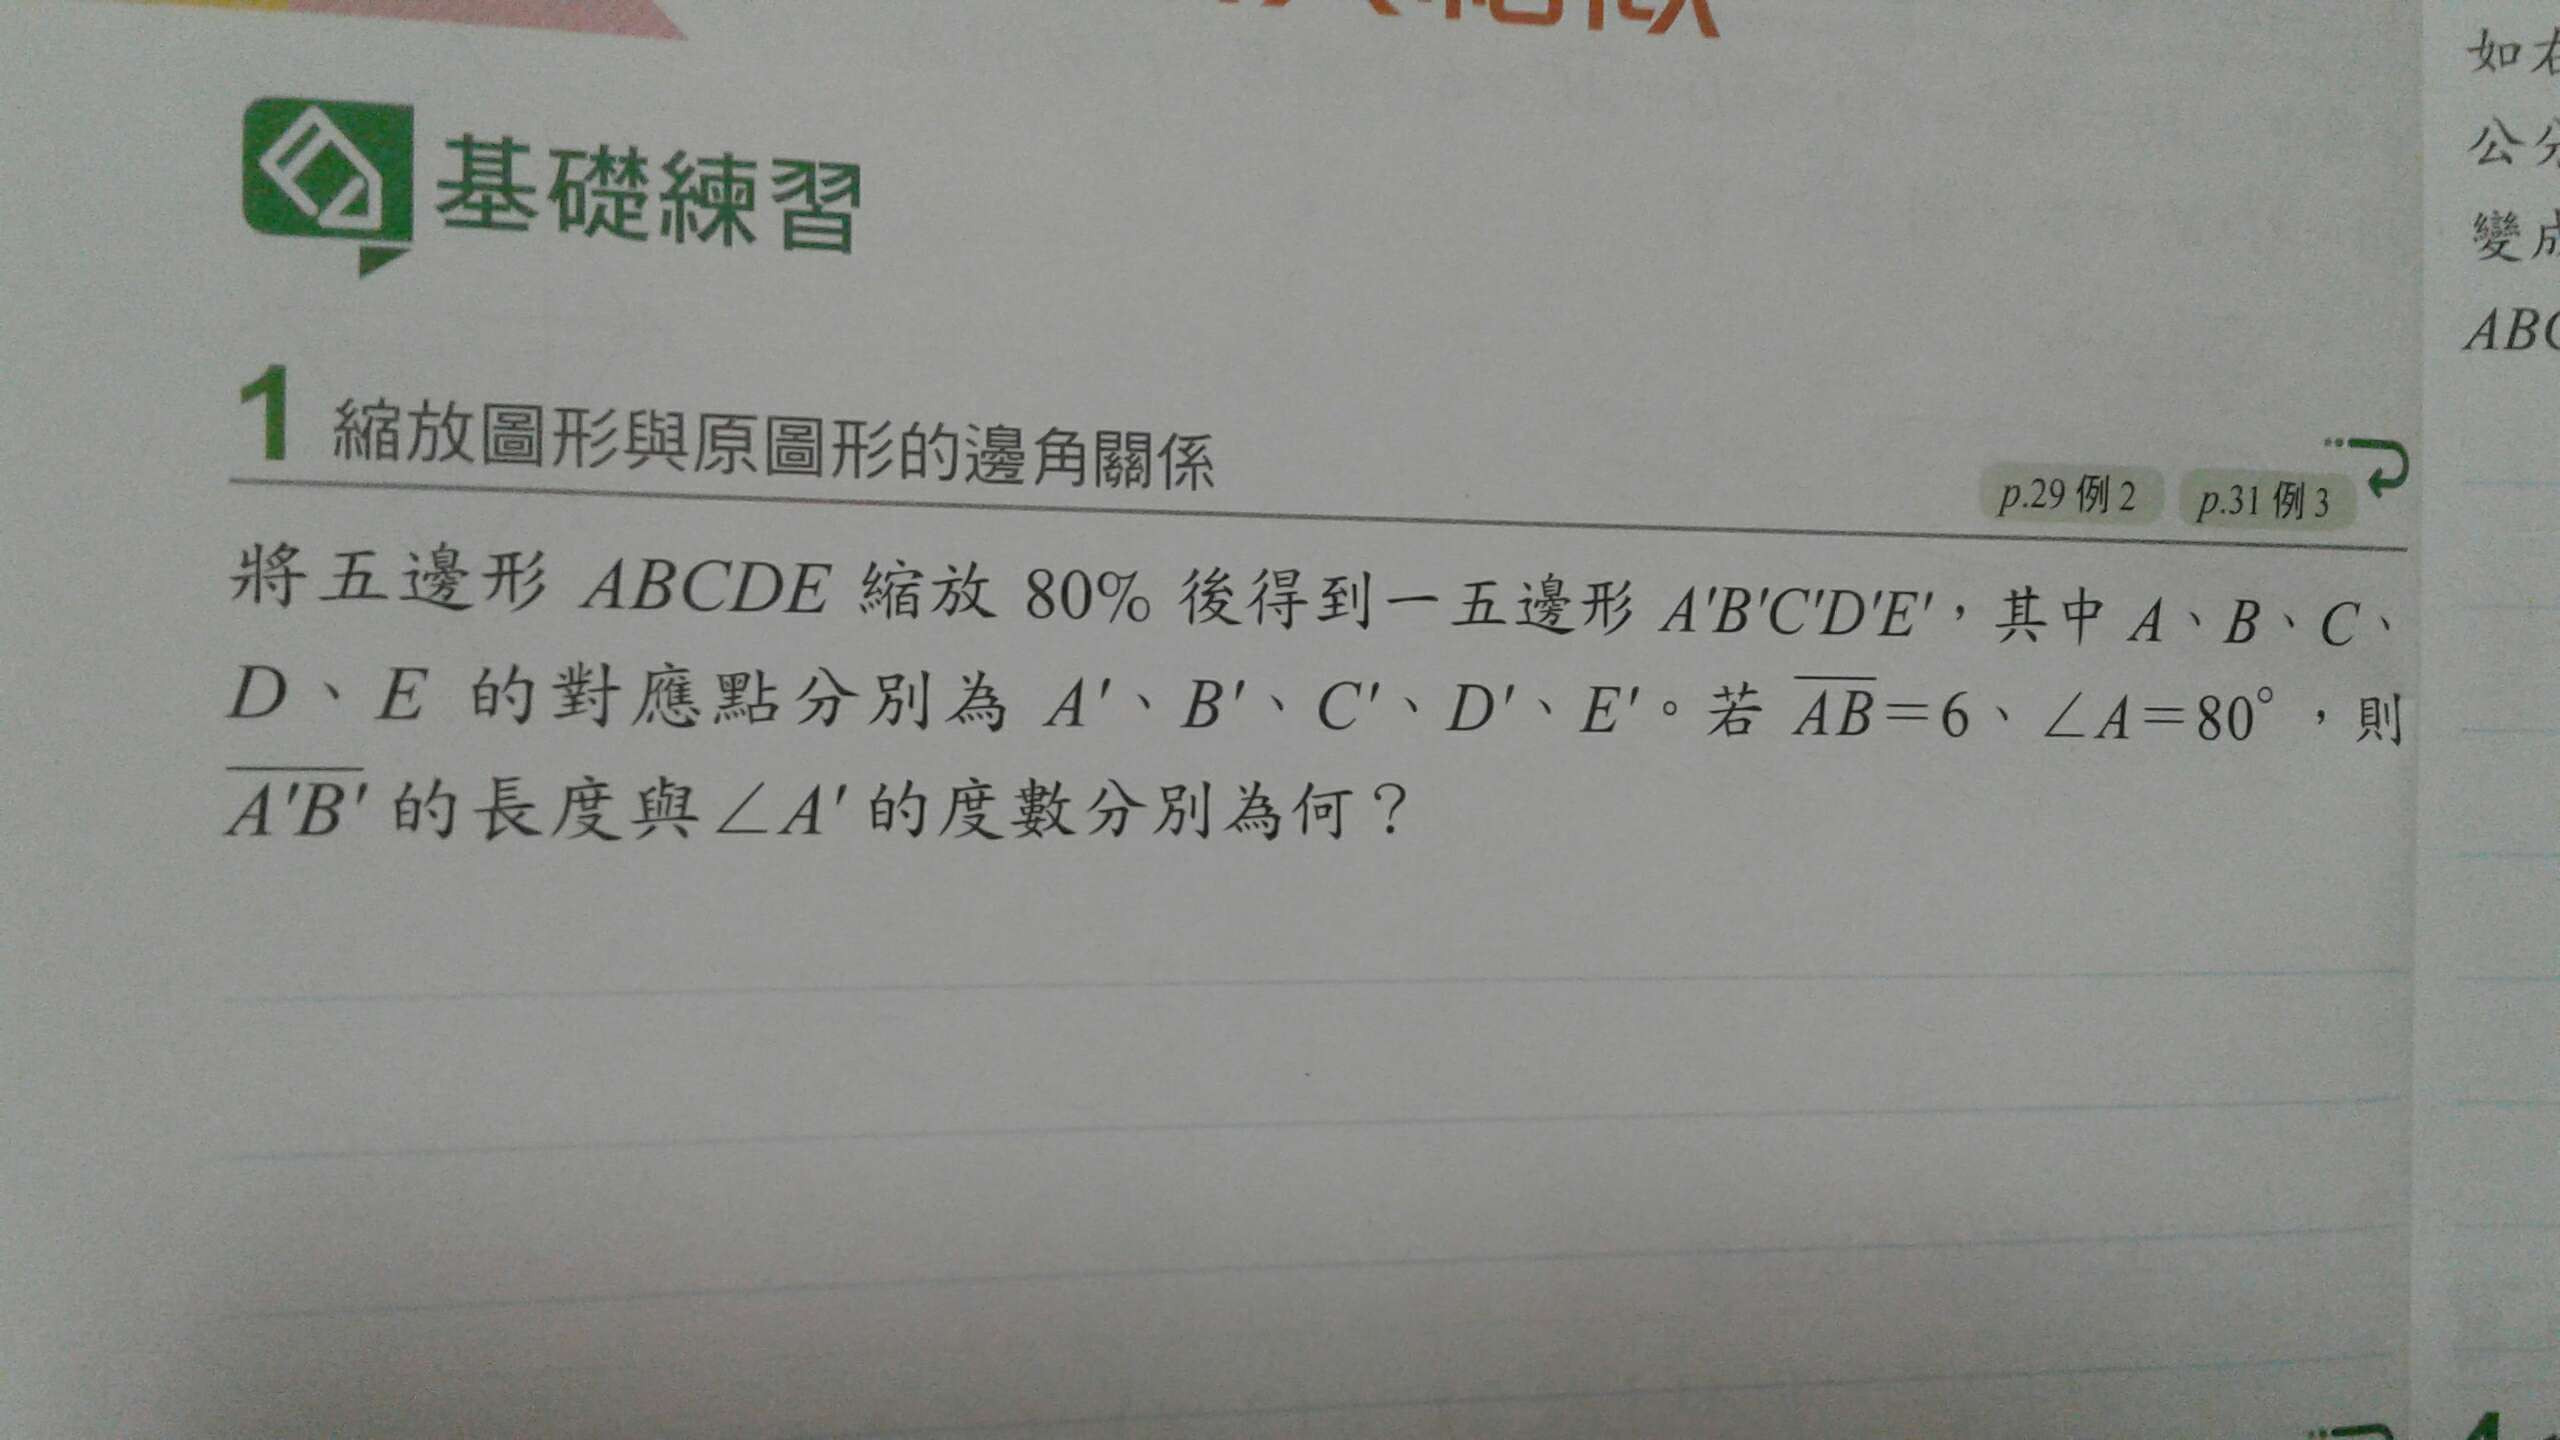 基礎練習
1 縮放圖形與原圖形的邊角關係
p.29 例 2 p.31 例 3
將五邊形 ABCDE 縮放 80% 後得到一五邊形 A'B'C'D'E'，其中 A、B、C、
D、E 的對應點分別為 A'、B'、C'、D'、E'。若 AB=6、∠A=80°，則
A'B' 的長度與∠A' 的度數分別為何？
如
公分
變成
ABC